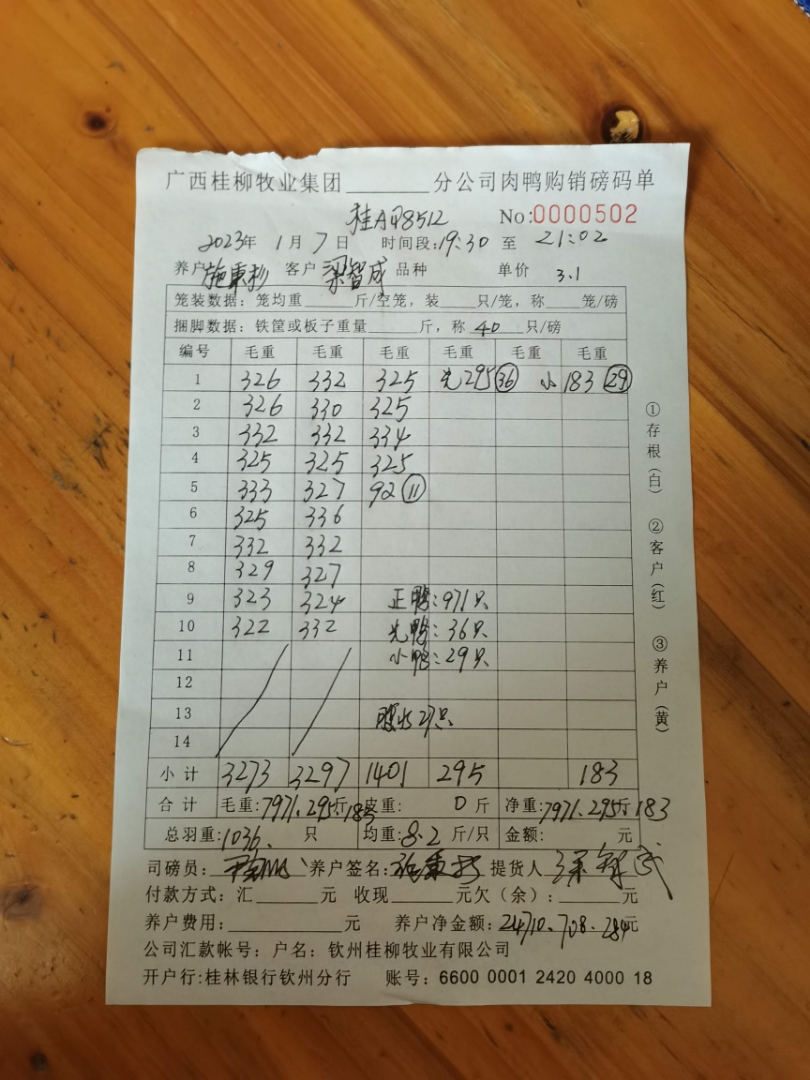 广西桂柳牧业集团________分公司肉鸭购销磅码单
桂A Q8512 No:0000502
2023年 1月 7日 时间段:19:30 至 21:02
养户 施秉杉 客户 梁智成 品种 单价 3.1
笼装数据: 笼均重_____斤/空笼, 装____只/笼, 称____笼/磅
捆脚数据: 铁筐或板子重量_____斤, 称 40 只/磅
编号 毛重 毛重 毛重 毛重 毛重 毛重
1 326 332 325 光295 36 小 183 29
2 326 330 325
3 332 332 334
4 325 325 325
5 333 327 92 11
6 325 336
7 332 332
8 329 327
9 323 324 正鸭:971只
10 322 332 光鸭:36只
11 小鸭:29只
12
13 27只
14
小计 3273 3297 1401 295 183
合计 毛重:7971.295斤.183 皮重: 0 斤 净重:7971.295斤.183
总羽重:1036. 只 均重:8.2 斤/只 金额: 元
司磅员: 养户签名: 施秉杉 提货人 梁智成
付款方式: 汇______元 收现______元欠(余):______元
养户费用:____________元 养户净金额:24710.708.284元
公司汇款帐号: 户名: 钦州桂柳牧业有限公司
开户行:桂林银行钦州分行 账号: 6600 0001 2420 4000 18
①存根(白) ②客户(红) ③养户(黄)